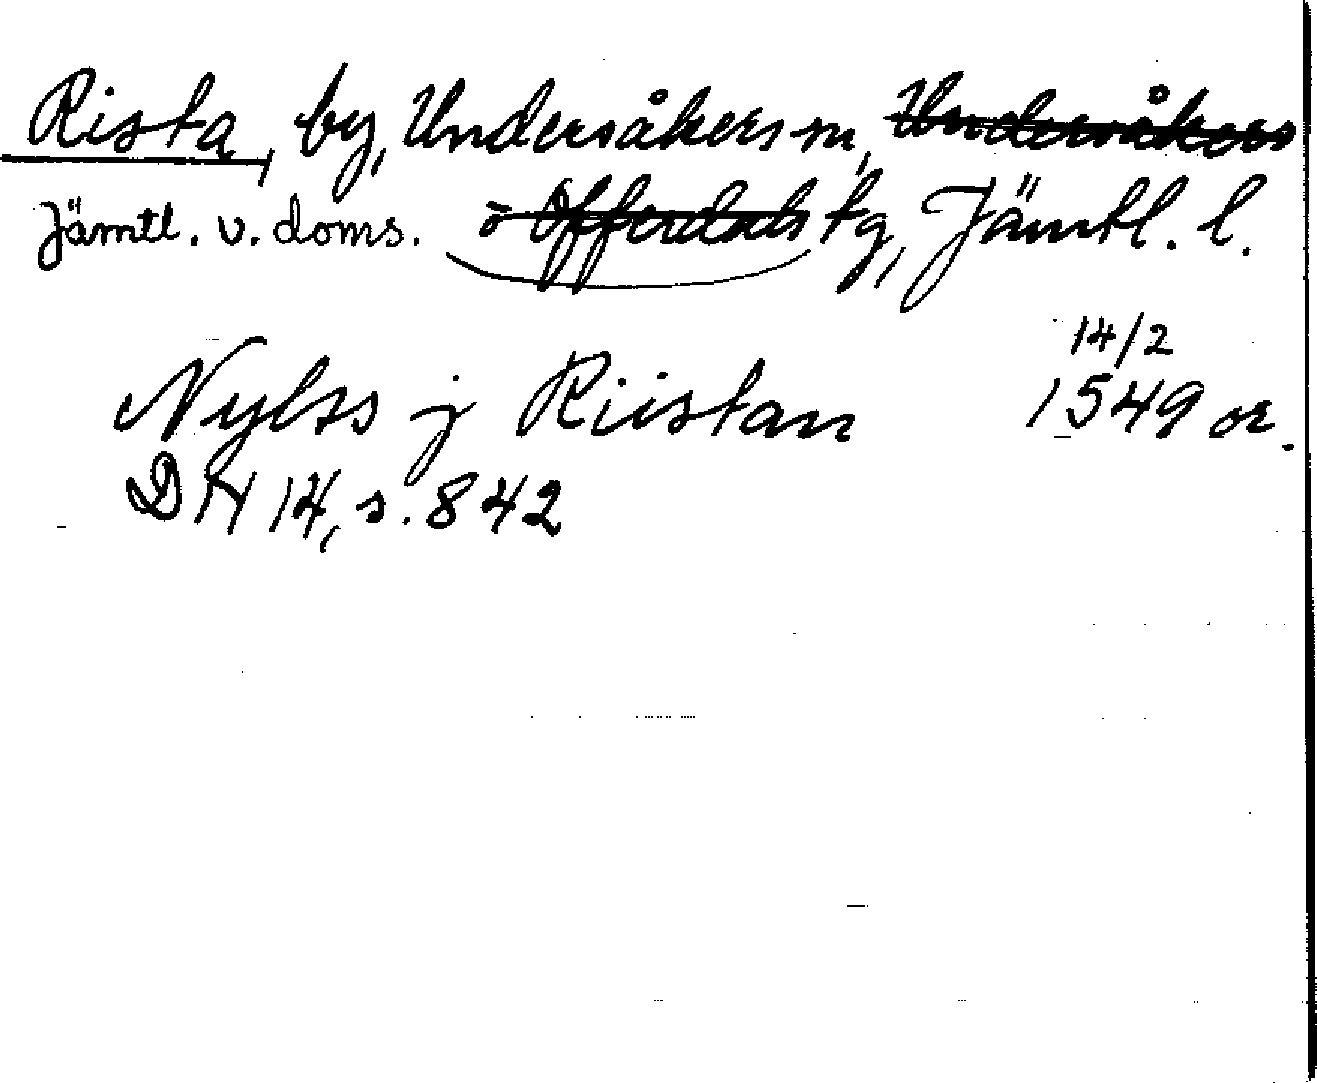 Rista, by, Undersåkers sn, Undersåkers
Jämtl. v. doms. o Offerdals tg, Jämtl. l.
14/2
Nylss j Riistan 1549 or.
DN 14, s. 842